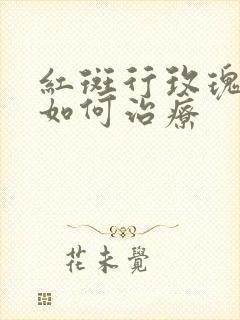 紅斑行玫瑰
如何治療
花未覺